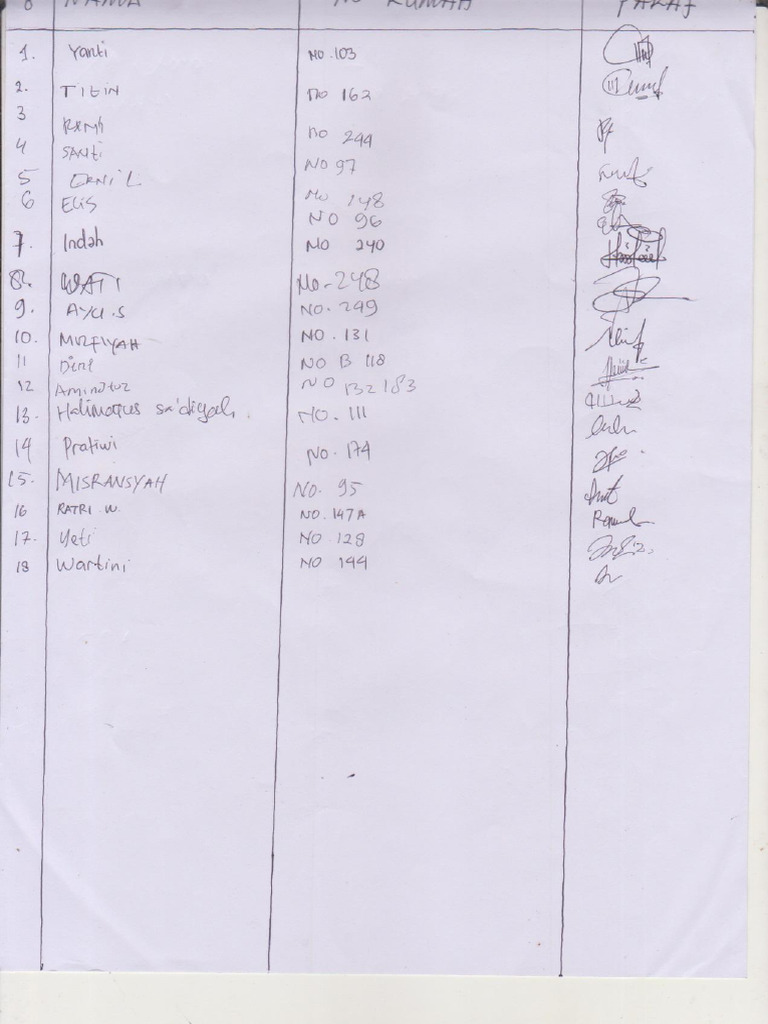 NAMA NO RUMAH PARAF
1. Yanti NO. 103
2. TITIN NO 162
3 RENI NO 244
4 SANTI NO 97
5 ERNI L NO 148
6 ELIS NO 96
7. Indah NO 240
8. WATI No. 248
9. AYU.S NO. 249
10. MUZFIYAH NO. 131
11 Dini NO B 118
12 Aminatuz NO B2 183
13. Halimatus sa'diyah. NO. 111
14 Pratiwi NO. 174
15. MISRANSYAH NO. 95
16 RATRI W. NO. 147A
17. Yeti NO. 128
18 Wartini NO 144